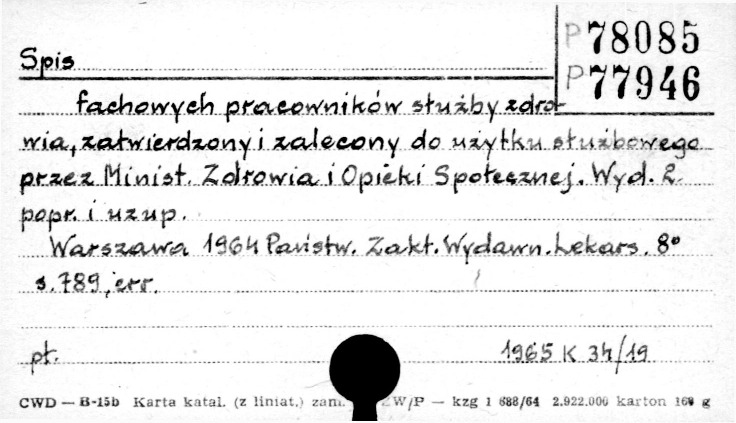 P 78085
Spis
P 77946
fachowych pracowników służby zdro-
wia, zatwierdzony i zalecony do użytku służbowego
przez Minist. Zdrowia i Opieki Społecznej. Wyd. 2
popr. i uzup.
Warszawa 1964 Państw. Zakt. Wydawn. Lekars. 8°
s. 789, err.
pł. 1965 K 34/19
CWD — B-15b Karta katal. (z liniat.) zam. ZW/P — kzg 1 688/64 2.922.000 karton 160 g